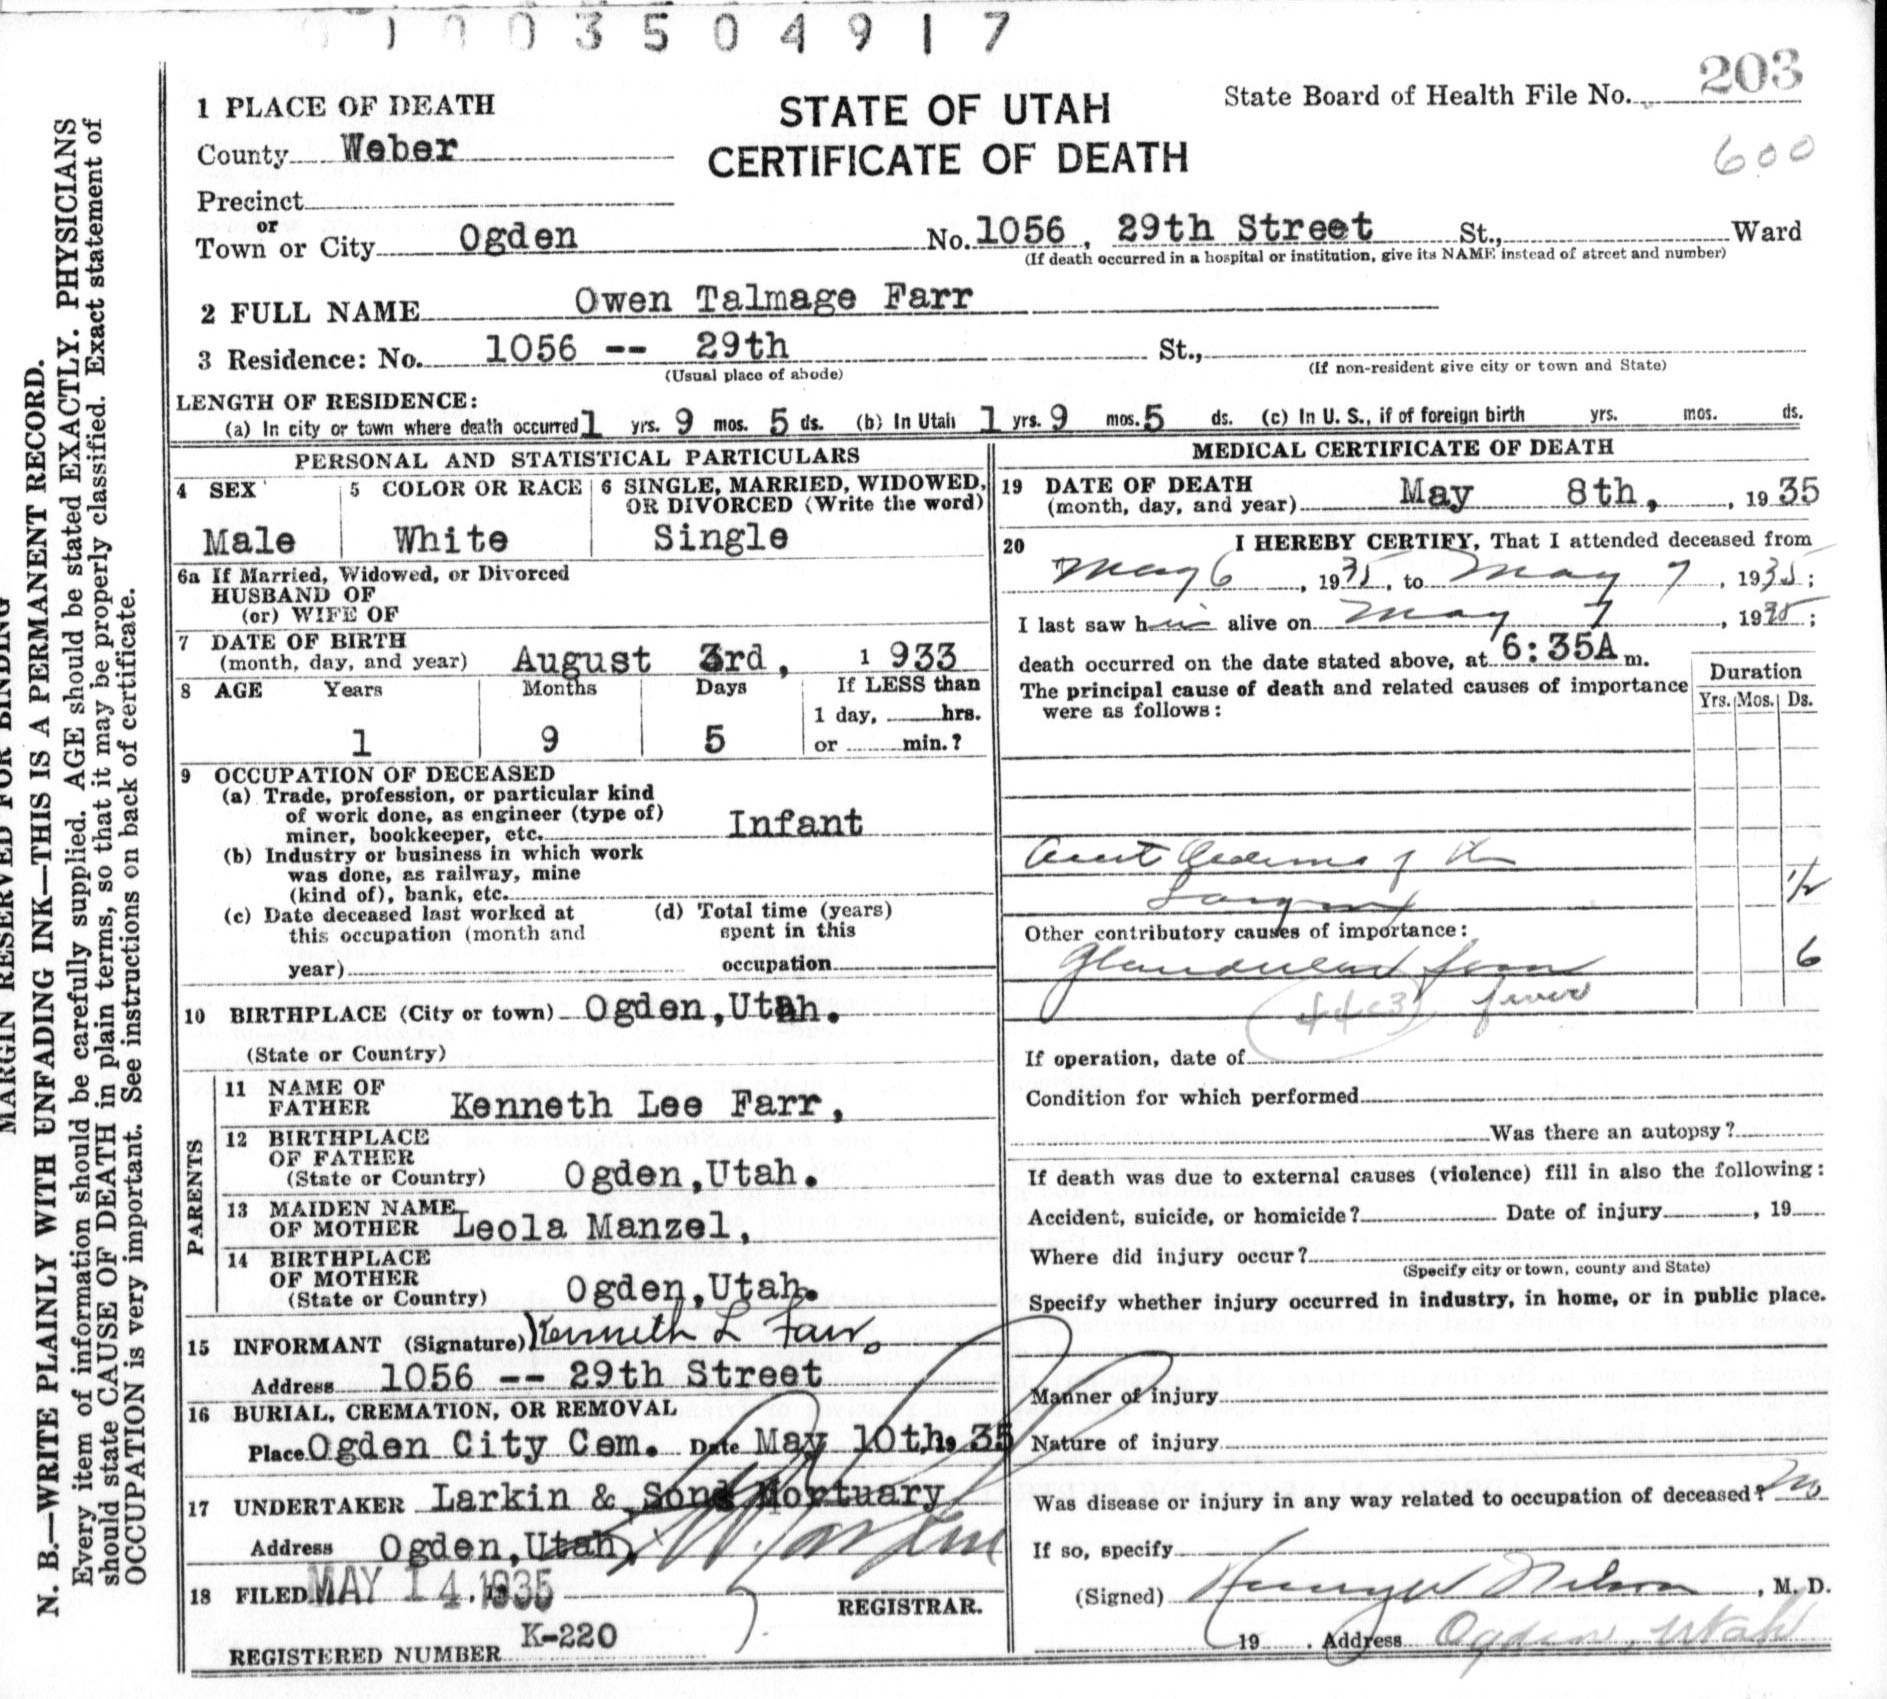 1003504917
1 PLACE OF DEATH
STATE OF UTAH
CERTIFICATE OF DEATH
State Board of Health File No. 203
600
County Weber
Precinct
or
Town or City Ogden No. 1056, 29th Street St., Ward
(If death occurred in a hospital or institution, give its NAME instead of street and number)
2 FULL NAME Owen Talmage Farr
3 Residence: No. 1056 -- 29th St.,
(Usual place of abode) (If non-resident give city or town and State)
LENGTH OF RESIDENCE:
(a) In city or town where death occurred 1 yrs. 9 mos. 5 ds. (b) In Utah 1 yrs. 9 mos. 5 ds. (c) In U. S., if of foreign birth yrs. mos. ds.
PERSONAL AND STATISTICAL PARTICULARS
4 SEX 5 COLOR OR RACE 6 SINGLE, MARRIED, WIDOWED,
OR DIVORCED (Write the word)
Male White Single
6a If Married, Widowed, or Divorced
HUSBAND OF
(or) WIFE OF
7 DATE OF BIRTH
(month, day, and year) August 3rd, 1933
8 AGE Years Months Days If LESS than
1 day, hrs.
1 9 5 or min.?
9 OCCUPATION OF DECEASED
(a) Trade, profession, or particular kind
of work done, as engineer (type of)
miner, bookkeeper, etc. Infant
(b) Industry or business in which work
was done, as railway, mine
(kind of), bank, etc.
(c) Date deceased last worked at (d) Total time (years)
this occupation (month and spent in this
year) occupation
10 BIRTHPLACE (City or town) Ogden,Utah.
(State or Country)
PARENTS
11 NAME OF
FATHER Kenneth Lee Farr,
12 BIRTHPLACE
OF FATHER
(State or Country) Ogden,Utah.
13 MAIDEN NAME
OF MOTHER Leola Manzel,
14 BIRTHPLACE
OF MOTHER
(State or Country) Ogden,Utah.
15 INFORMANT (Signature) Kenneth L Farr
Address 1056 -- 29th Street
16 BURIAL, CREMATION, OR REMOVAL
Place Ogden City Cem. Date May 10th, 35
17 UNDERTAKER Larkin & Sons Mortuary
Address Ogden,Utah,
18 FILED MAY 14 1935
REGISTRAR.
REGISTERED NUMBER K-220
MEDICAL CERTIFICATE OF DEATH
19 DATE OF DEATH
(month, day, and year) May 8th, , 1935
20 I HEREBY CERTIFY, That I attended deceased from
May 6, 1935, to May 7, 1935;
I last saw him alive on May 7, 1935;
death occurred on the date stated above, at 6:35A m.
The principal cause of death and related causes of importance
were as follows:
Duration
Yrs. Mos. Ds.
Edema of the
Larynx 1/2
Other contributory causes of importance:
Glandular fever 6
fever
If operation, date of
Condition for which performed
Was there an autopsy?
If death was due to external causes (violence) fill in also the following:
Accident, suicide, or homicide? Date of injury , 19
Where did injury occur?
(Specify city or town, county and State)
Specify whether injury occurred in industry, in home, or in public place.
Manner of injury
Nature of injury
Was disease or injury in any way related to occupation of deceased? No
If so, specify
(Signed) Henry W Nelson, M. D.
19 . Address Ogden, Utah
MARGIN RESERVED FOR BINDING
N. B.—WRITE PLAINLY WITH UNFADING INK—THIS IS A PERMANENT RECORD.
Every item of information should be carefully supplied. AGE should be stated EXACTLY. PHYSICIANS
should state CAUSE OF DEATH in plain terms, so that it may be properly classified. Exact statement of
OCCUPATION is very important. See instructions on back of certificate.